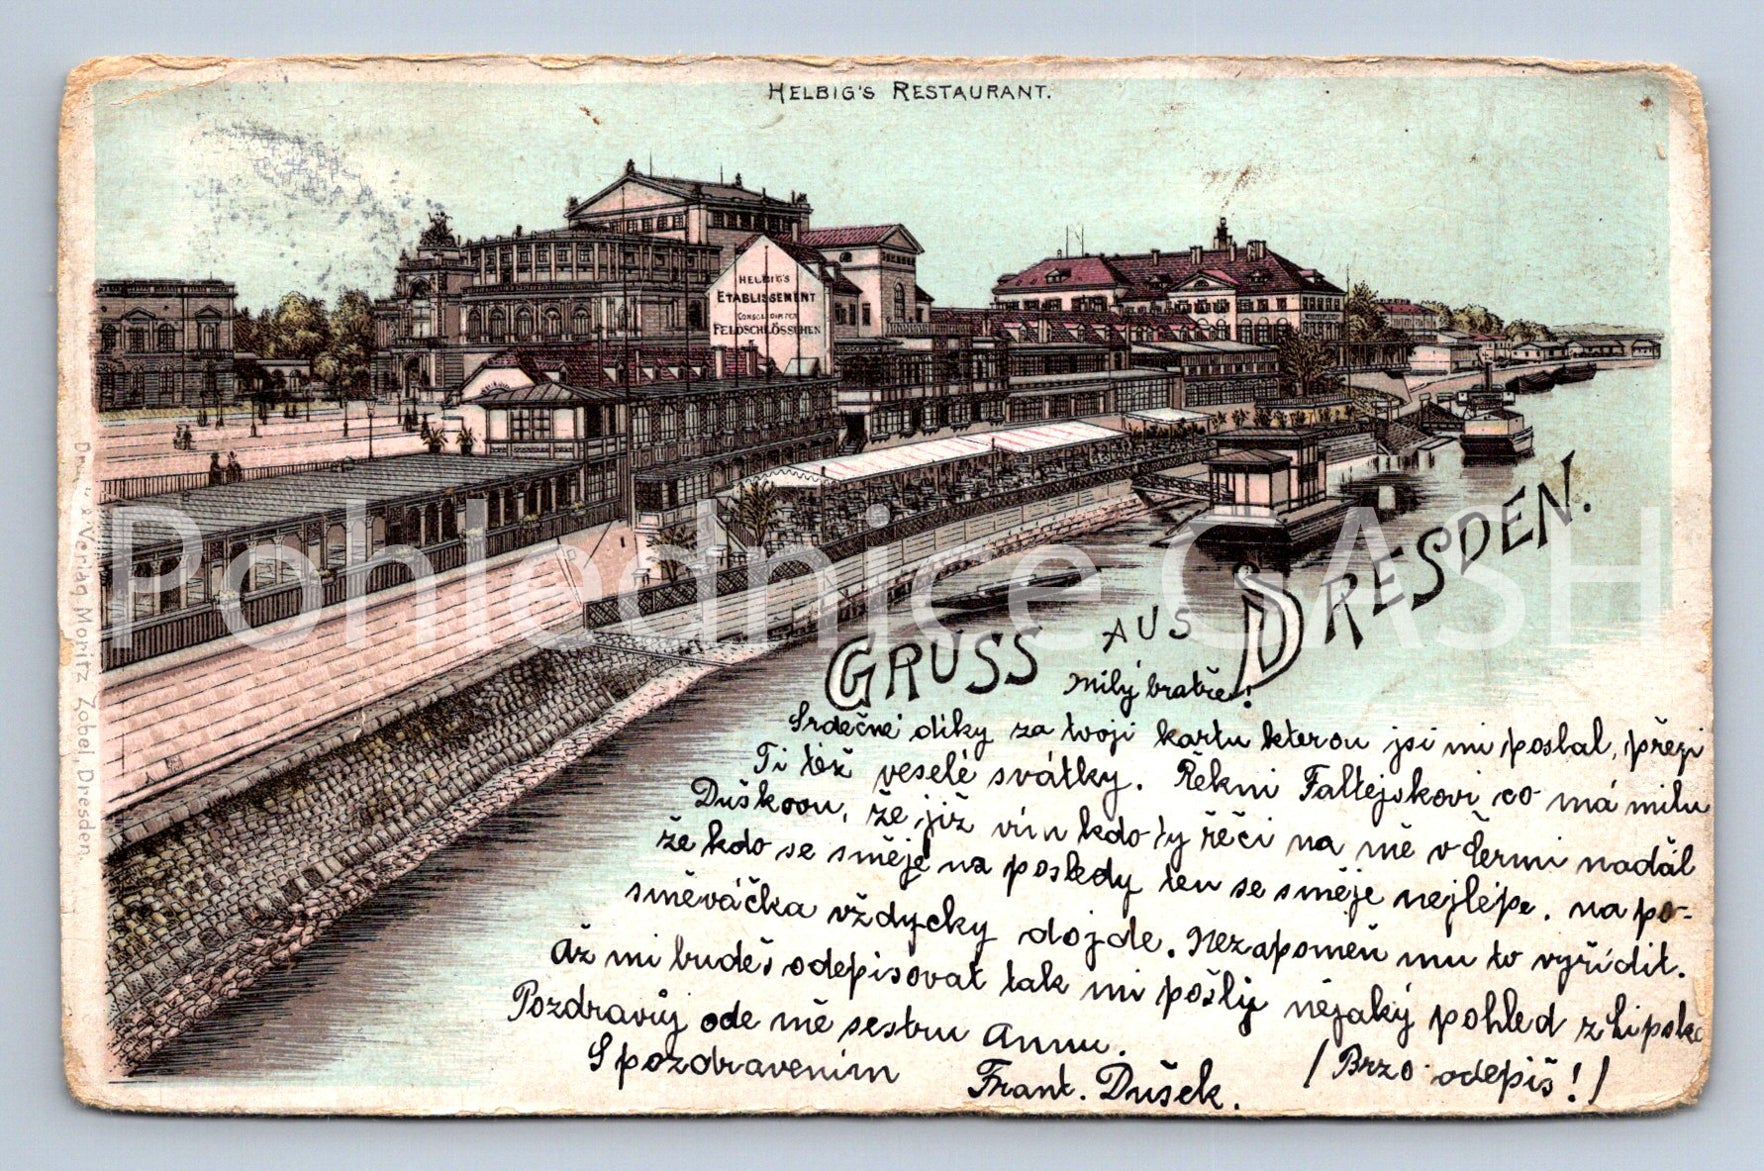 HELBIG'S RESTAURANT.
HELBIG'S
ETABLISSEMENT
FELDSCHLÖSSCHEN
GRUSS AUS DRESDEN.
Milý bratře!
Srdečné díky za tvoji kartu kterou jsi mi poslal, přeji
Ti též veselé svátky. Řekni Faltejskovi co má milu
Duškovu, že již vím kdo ty řeči na mě v Čermi nadál
že kdo se směje na posledy ten se směje nejlépe. na po-
směváčka vždycky dojde. Nezapomeň mu to vyřídit.
Až mi budeš odepisovat tak mi pošly nějaký pohled z Lipska
Pozdravůj ode mě sestru Annu.
S pozdravením
Frant. Dušek.
/Brzo odepiš!/
Verlag Moritz Zobel, Dresden.
Pohlednice GASH